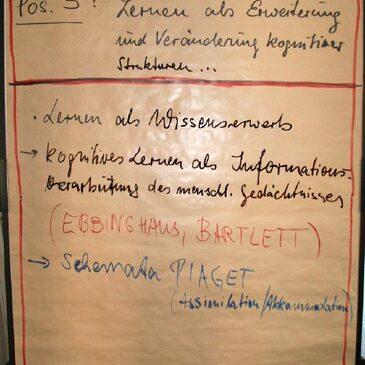 Pos. 3: Lernen als Erweiterung
und Veränderung kognitiver
Strukturen...
· Lernen als Wissenserwerb
→ kognitives Lernen als Informations-
verarbeitung des menschl. Gedächtnisses
(EBBINGHAUS, BARTLETT)
→ Schemata PIAGET
(Assimilation/Akkommodation)